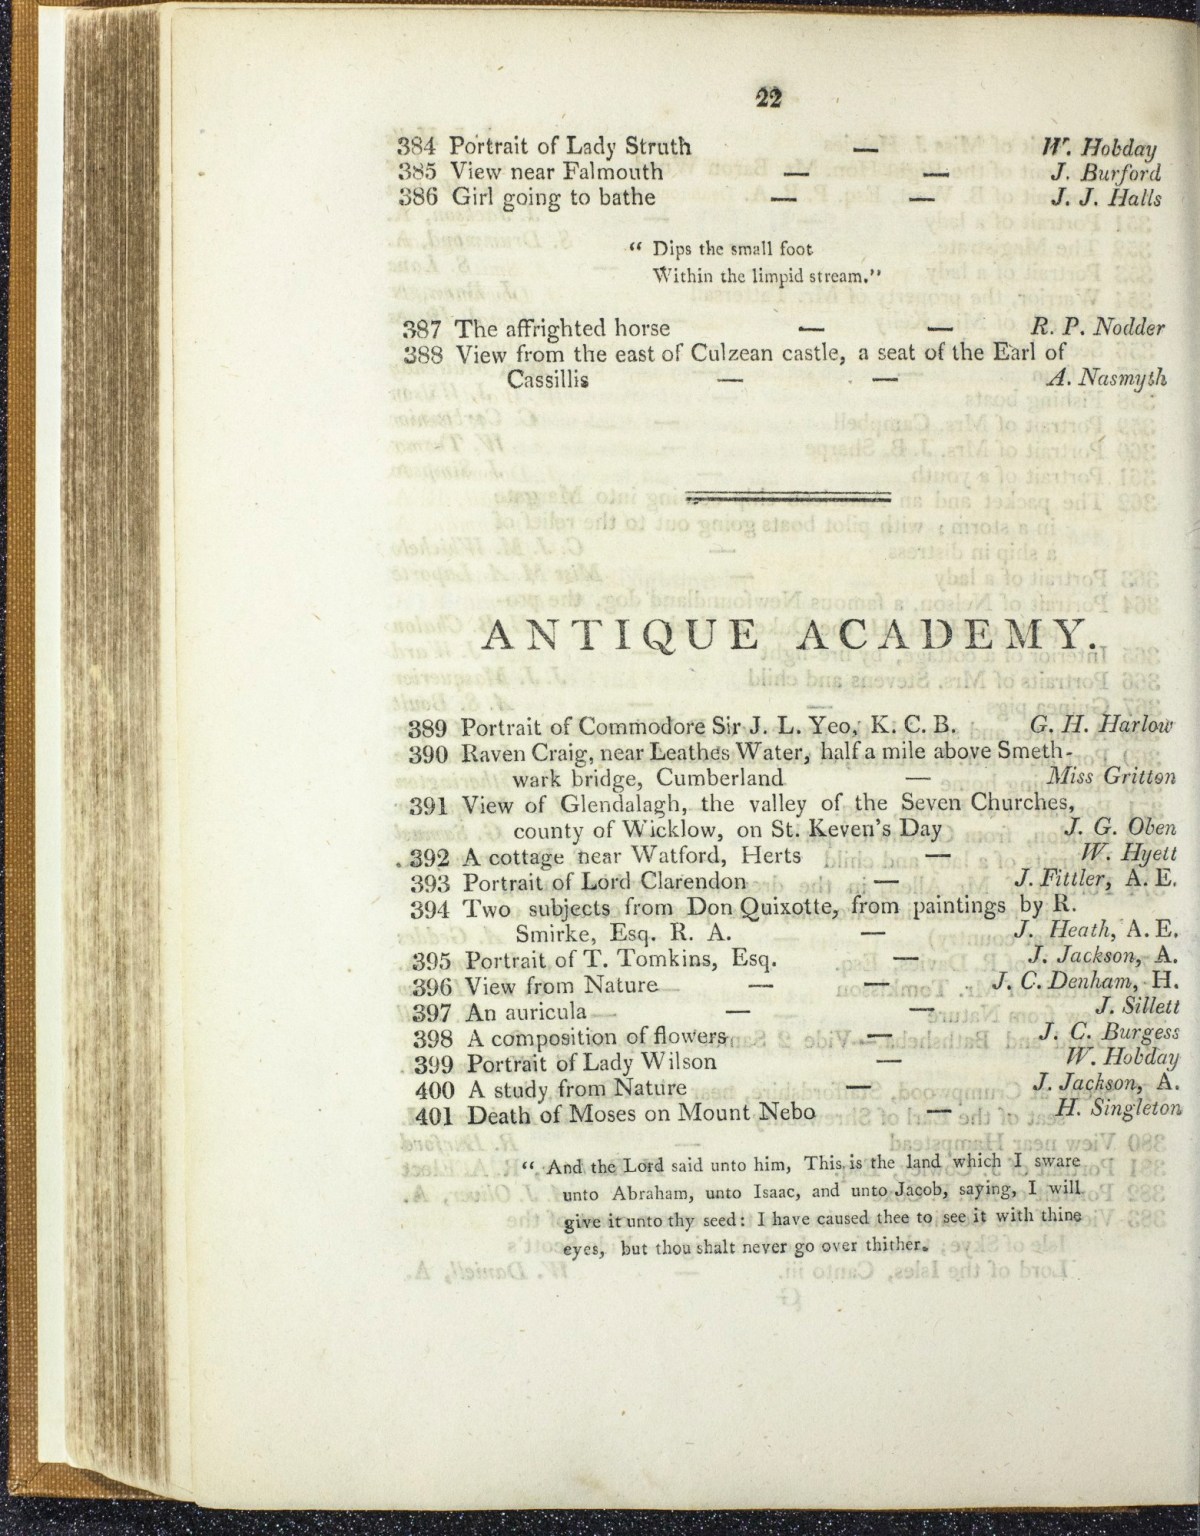 22
384 Portrait of Lady Struth — W. Hobday
385 View near Falmouth — — J. Burford
386 Girl going to bathe — — J. J. Halls
“ Dips the small foot
Within the limpid stream.”
387 The affrighted horse — — R. P. Nodder
388 View from the east of Culzean castle, a seat of the Earl of
Cassillis — — A. Nasmyth
ANTIQUE ACADEMY.
389 Portrait of Commodore Sir J. L. Yeo, K. C. B. G. H. Harlow
390 Raven Craig, near Leathes Water, half a mile above Smeth-
wark bridge, Cumberland — Miss Gritton
391 View of Glendalagh, the valley of the Seven Churches,
county of Wicklow, on St. Keven's Day J. G. Oben
392 A cottage near Watford, Herts — W. Hyett
393 Portrait of Lord Clarendon — J. Fittler, A. E.
394 Two subjects from Don Quixotte, from paintings by R.
Smirke, Esq. R. A. — J. Heath, A. E.
395 Portrait of T. Tomkins, Esq. — J. Jackson, A.
396 View from Nature — — J. C. Denham, H.
397 An auricula — — J. Sillett
398 A composition of flowers — J. C. Burgess
399 Portrait of Lady Wilson — W. Hobday
400 A study from Nature — J. Jackson, A.
401 Death of Moses on Mount Nebo — H. Singleton
“ And the Lord said unto him, This is the land which I sware
unto Abraham, unto Isaac, and unto Jacob, saying, I will
give it unto thy seed: I have caused thee to see it with thine
eyes, but thou shalt never go over thither.